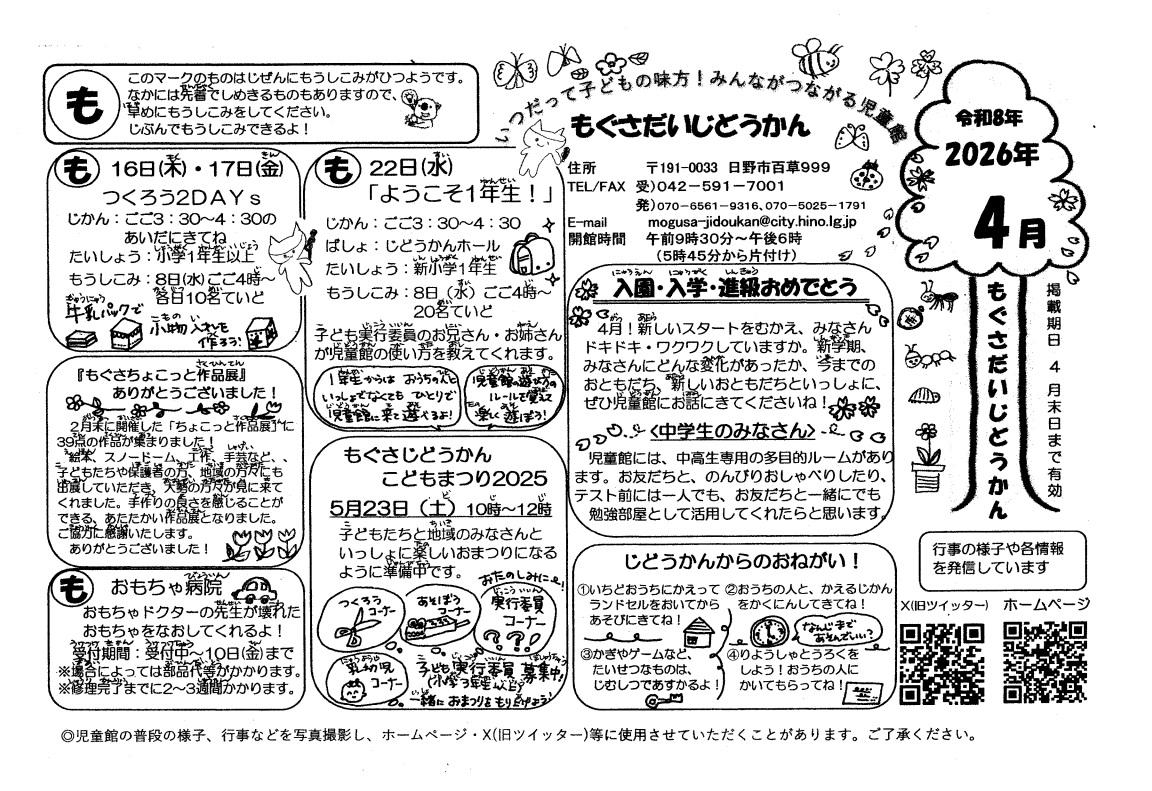 も
このマークのものはじぜんにもうしこみがひつようです。
なかには先着でしめきるものもありますので、
早めにもうしこみをしてください。
じぶんでもうしこみできるよ！
いつだって子どもの味方！みんながつながる児童館
もぐさだいじどうかん
住所　〒191-0033 日野市百草999
TEL/FAX 受）042－591－7001
発）070－6561－9316、070－5025－1791
E-mail mogusa-jidoukan@city.hino.lg.jp
開館時間 午前9時30分～午後6時
（5時45分から片付け）
令和8年
2026年
4月
もぐさだいじどうかん
掲載期日 4月末日まで有効
も 16日(木)・17日(金)
つくろう2DAYs
じかん：ごご3：30～4：30の
あいだにきてね
たいしょう：小学1年生以上
もうしこみ：8日(水) ごご4時～
各日10名ていど
牛乳パックで
小物入れを
作ろう！
も 22日(水)
「ようこそ1年生！」
じかん：ごご3：30～4：30
ばしょ：じどうかんホール
たいしょう：新小学1年生
もうしこみ：8日（水）ごご4時～
20名ていど
子ども実行委員のお兄さん・お姉さん
が児童館の使い方を教えてくれます。
1年生からは おうちの人と
いっしょでなくても ひとりで
児童館に来て遊べるよ！
児童館の遊び方の
ルールを覚えて
楽しく遊ぼう！
入園・入学・進級おめでとう
4月！新しいスタートをむかえ、みなさん
ドキドキ・ワクワクしていますか。新学期、
みなさんにどんな変化があったか、今までの
おともだち、新しいおともだちといっしょに、
ぜひ児童館にお話にきてくださいね！
＜中学生のみなさん＞
児童館には、中高生専用の多目的ルームがあり
ます。お友だちと、のんびりおしゃべりしたり、
テスト前には一人でも、お友だちと一緒にでも
勉強部屋として活用してくれたらと思います。
『もぐさちょこっと作品展』
ありがとうございました！
2月末に開催した「ちょこっと作品展」に
39点の作品が集まりました！
絵本、スノードーム、工作、手芸など、、
子どもたちや保護者の方、地域の方々にも
出展していただき、大勢の方々が見に来て
くれました。手作りの良さを感じることが
できる、あたたかい作品展となりました。
ご協力に感謝いたします。
ありがとうございました！
も おもちゃ病院
おもちゃドクターの先生が壊れた
おもちゃをなおしてくれるよ！
受付期間：受付中～10日(金)まで
※場合によっては部品代等がかかります。
※修理完了までに2～3週間かかります。
もぐさじどうかん
こどもまつり2025
5月23日（土）10時～12時
子どもたちと地域のみなさんと
いっしょに楽しいおまつりになる
ように準備中です。
おたのしみに～！
つくろう
コーナー
あそぼう
コーナー
実行委員
コーナー
???
乳幼児
コーナー
子ども実行委員 募集中！
（小学3年生以上）
一緒におまつりをもりあげよう！
じどうかんからのおねがい！
①いちどおうちにかえって
ランドセルをおいてから
あそびにきてね！
②おうちの人と、かえるじかん
をかくにんしてきてね！
なんじまで
あそんでいい？
③かぎやゲームなど、
たいせつなものは、
じむしつであずかるよ！
④りようしゃとうろくを
しよう！おうちの人に
かいてもらってね！
行事の様子や各情報
を発信しています
X(旧ツイッター)
ホームページ
◎児童館の普段の様子、行事などを写真撮影し、ホームページ・X(旧ツイッター)等に使用させていただくことがあります。ご了承ください。